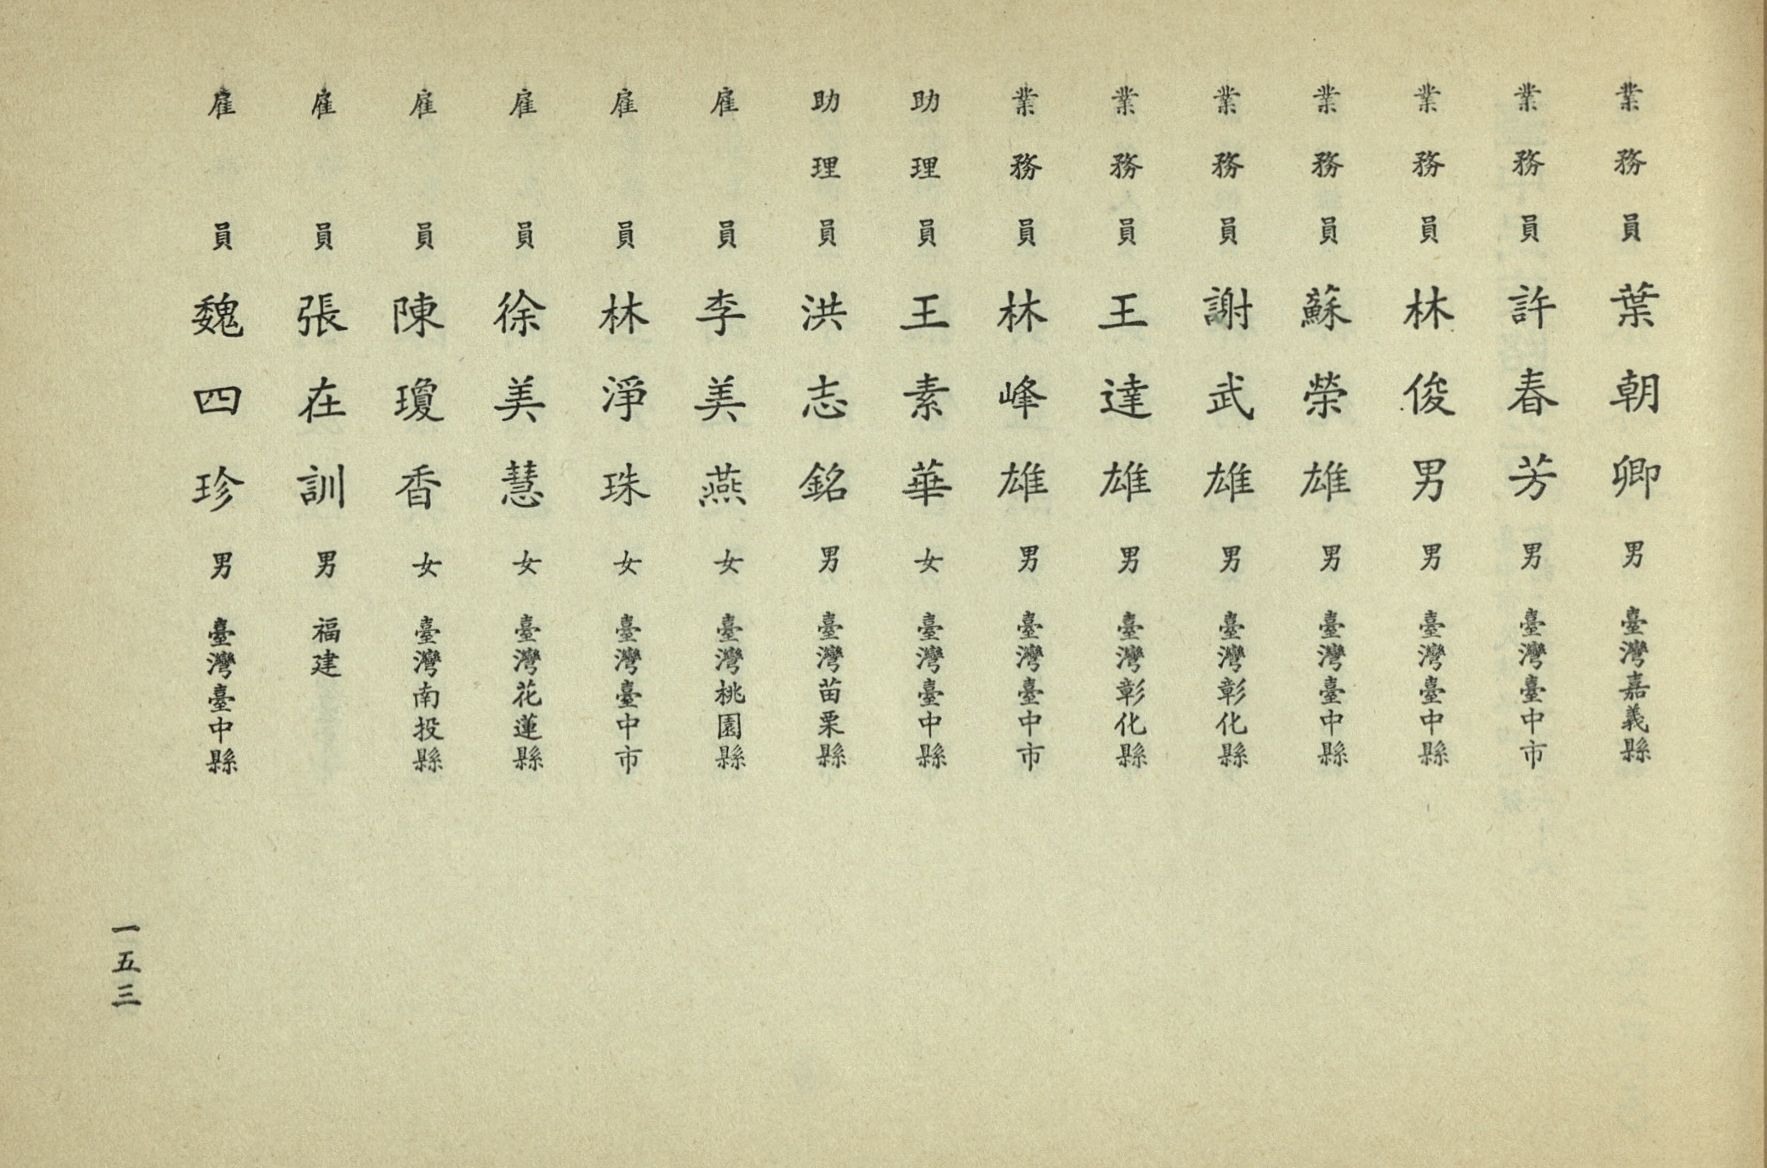 業務員 葉朝卿 男 臺灣嘉義縣
業務員 許春芳 男 臺灣臺中市
業務員 林俊男 男 臺灣臺中縣
業務員 蘇榮雄 男 臺灣臺中縣
業務員 謝武雄 男 臺灣彰化縣
業務員 王達雄 男 臺灣彰化縣
業務員 林峰雄 男 臺灣臺中市
助理員 王素華 女 臺灣臺中縣
助理員 洪志銘 男 臺灣苗栗縣
雇員 李美燕 女 臺灣桃園縣
雇員 林淨珠 女 臺灣臺中市
雇員 徐美慧 女 臺灣花蓮縣
雇員 陳瓊香 女 臺灣南投縣
雇員 張在訓 男 福建
雇員 魏四珍 男 臺灣臺中縣
一五三